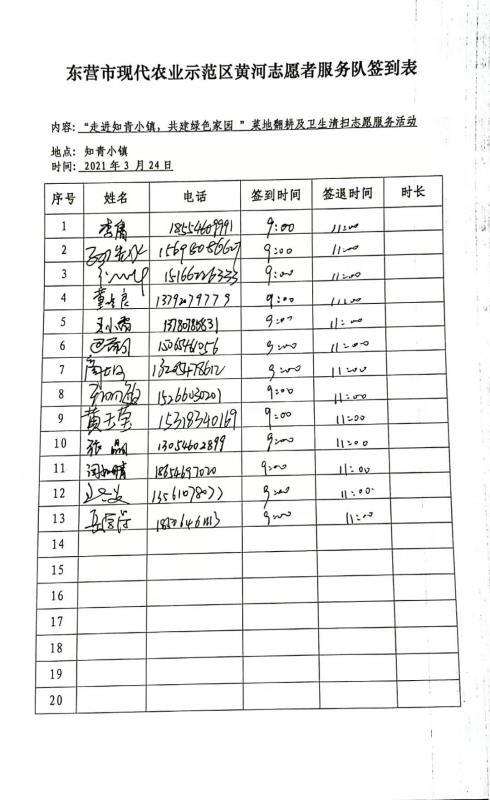 东营市现代农业示范区黄河志愿者服务队签到表
内容：“走进知青小镇，共建绿色家园 ”菜地翻耕及卫生清扫志愿服务活动
地点：知青小镇
时间：2021年3月24日
序号 姓名 电话 签到时间 签退时间 时长
1 18554609991 9:00 11:00
2 9:00 11:00
3 15166226333 9:00 11:00
4 董 良 13792079779 9:00 11:00
5 王小雷 9:00 11:00
6 15065461056 9:00 11:00
7 9:00 11:00
8 15266030201 9:00 11:00
9 黄玉莹 15318340169 9:00 11:00
10 张晶 13054602899 9:00 11:00
11 闫 晴 18654697020 9:00 11:00
12 13561078077 9:00 11:00
13 9:00 11:00
14
15
16
17
18
19
20